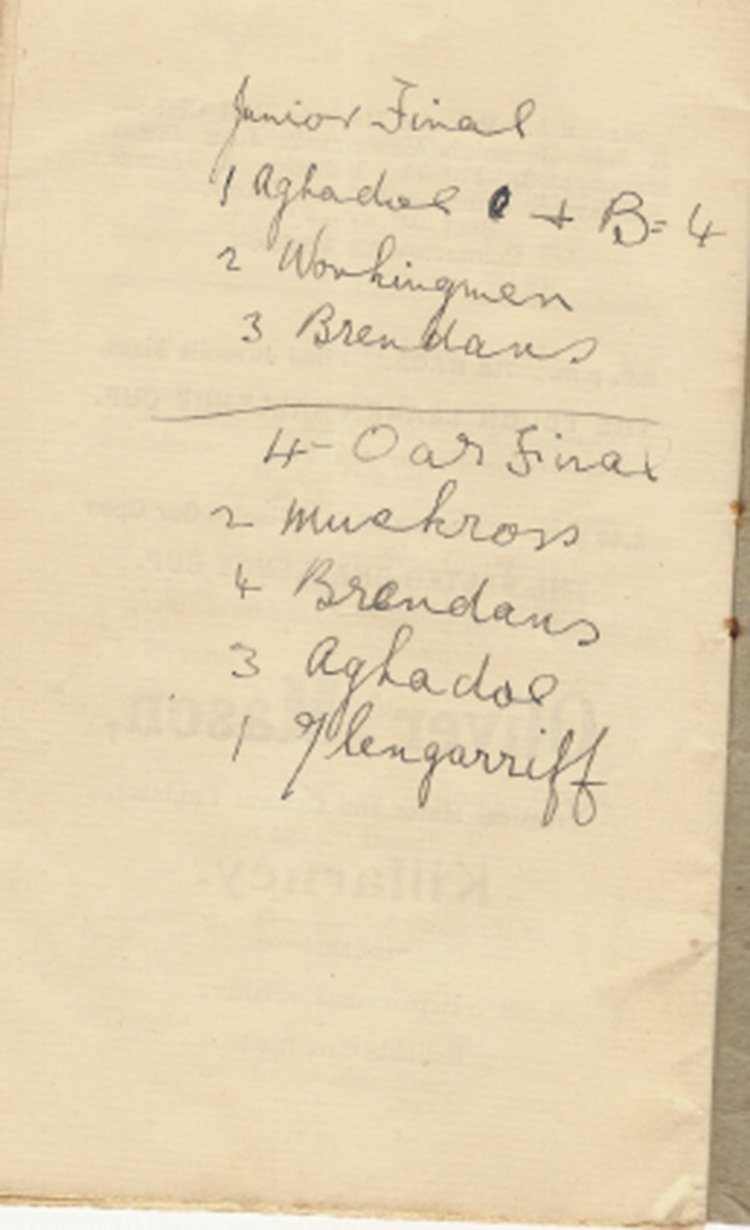 Junior Final
1 Aghadoe + B = 4
2 Workingmen
3 Brendans
4-Oar Final
2 Muckross
4 Brendans
3 Aghadoe
1 Glengarriff
Oliver Mason,
Killarney.